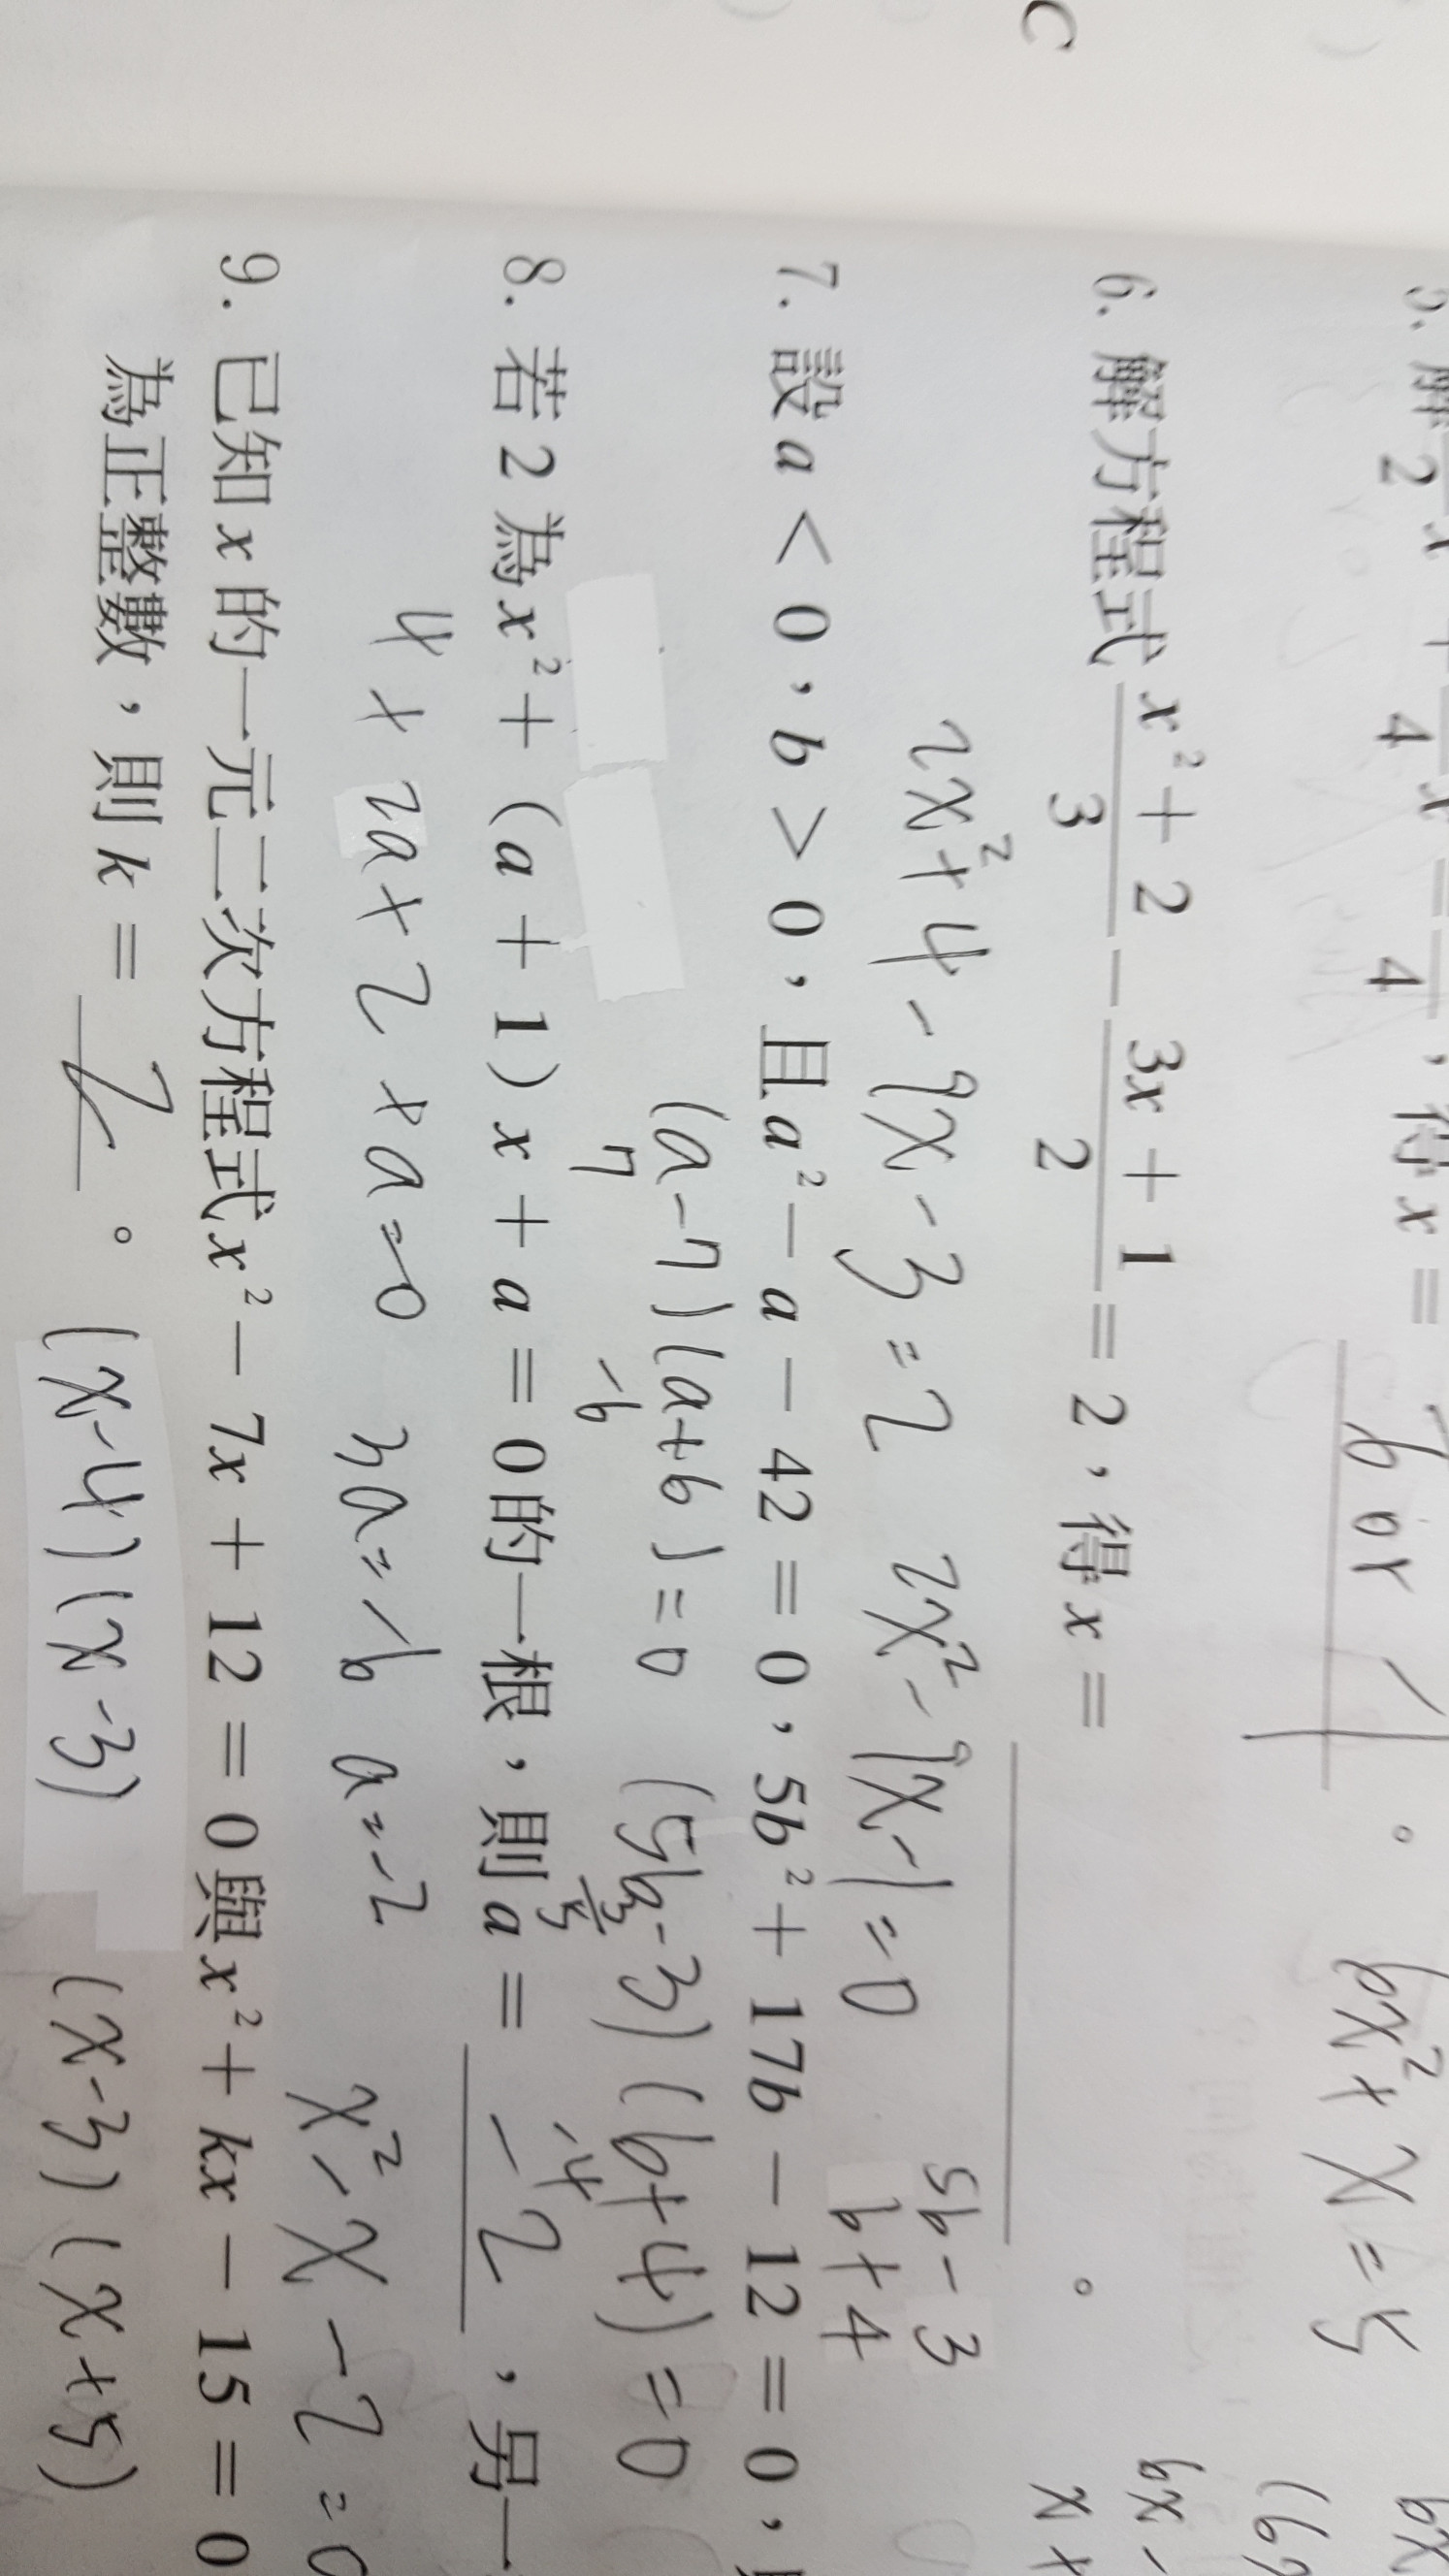 C
6. 解方程式 (x²+2)/3 - (3x+1)/2 = 2,得x=
。
2x²+4-9x-3=2 2x²-9x-1=0
5b-3
b+4
7. 設a<0,b>0,且a²-a-42=0,5b²+17b-12=0,
(a-7)(a+6)=0 (5b-3)(b+4)=0
7 -6 3/5 -4
8. 若2為x²+(a+1)x+a=0的一根,則a= -2 ,另一
4+2a+2+a=0 3a=-6 a=-2 x²-x-2=0
9. 已知x的一元二次方程式x²-7x+12=0與x²+kx-15=0
為正整數,則k= 2 。 (x-4)(x-3) (x-3)(x+5)